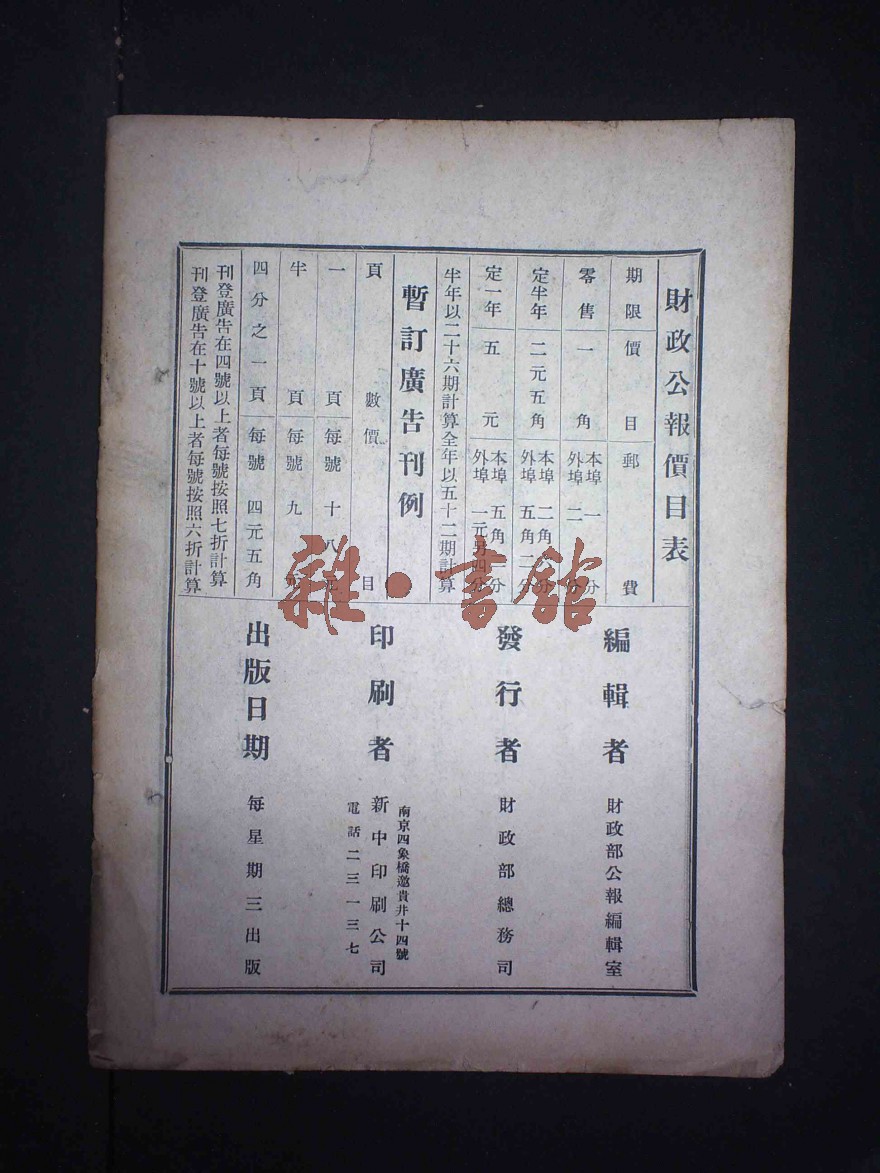 財政公報價目表
期限價目郵費
零售一角本埠一分
外埠二分
定半年二元五角本埠二角
外埠五角二分
定一年五元本埠五角分
外埠一元四分
半年以二十六期計算全年以五十二期計算
暫訂廣告刊例
頁數價目
一頁每號十八元
半頁每號九元
四分之一頁每號四元五角
刊登廣告在四號以上者每號按照七折計算
刊登廣告在十號以上者每號按照六折計算
編輯者財政部公報編輯室
發行者財政部總務司
南京四象橋邀貴井十四號
印刷者新中印刷公司
電話二三一三七
出版日期每星期三出版
雜·書館